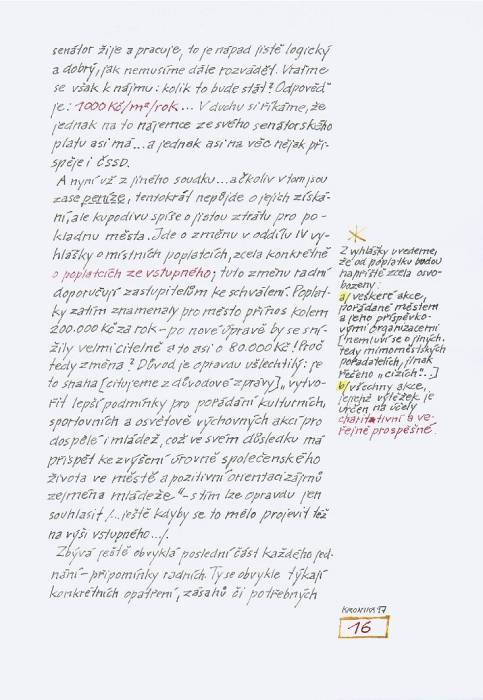 senátor žije a pracuje, to je nápad jistě logický
a dobrý, jak nemusíme dále rozvádět. Vraťme
se však k nájmu: kolik to bude stát? Odpověď
je: 1000 Kč/m²/rok... V duchu si říkáme, že
jednak na to nájemce ze svého senátorského
platu asi má...a jednak asi na věc nějak při-
spěje i ČSSD.
A nyní už z jiného soudku...ačkoliv v tom jsou
zase peníze, tentokrát nepůjde o jejich získá-
ní, ale kupodivu spíše o jistou ztrátu pro po-
kladnu města. Jde o změnu v oddílu IV vy-
hlášky o místních poplatcích, zcela konkrétně
o poplatcích ze vstupného; tuto změnu radní
doporučují zastupitelům ke schválení. Poplat-
ky zatím znamenaly pro město přínos kolem
200.000 Kč za rok – po nové úpravě by se sní-
žily velmi citelně a to asi o 80.000 Kč! Proč
tedy změna? Důvod je opravdu ušlechtilý: je
to snaha [citujeme z důvodové zprávy] „vytvo-
řit lepší podmínky pro pořádání kulturních,
sportovních a osvětově výchovných akcí pro
dospělé i mládež, což ve svém důsledku má
přispět ke zvýšení úrovně společenského
života ve městě a pozitivní orientaci zájmů
zejména mládeže“ – s tím lze opravdu jen
souhlasit /...ještě kdyby se to mělo projevit též
na výši vstupného.../.
Zbývá ještě obvyklá poslední část každého jed-
nání – připomínky radních. Ty se obvykle týkají
konkrétních opatření, zásahů či potřebných
Z vyhlášky uvedeme,
že od poplatku budou
napříště zcela osvo-
bozeny:
a/ veškeré akce,
pořádané městem
a jeho příspěvko-
vými organizacemi
[nemluví se o jiných,
tedy mimoměstských
pořadatelích, jinak
řečeno „cizích“...]
b/ všechny akce,
jejichž výtěžek je
určen na účely
charitativní a ve-
řejně prospěšné.
KRONIKA 97
16